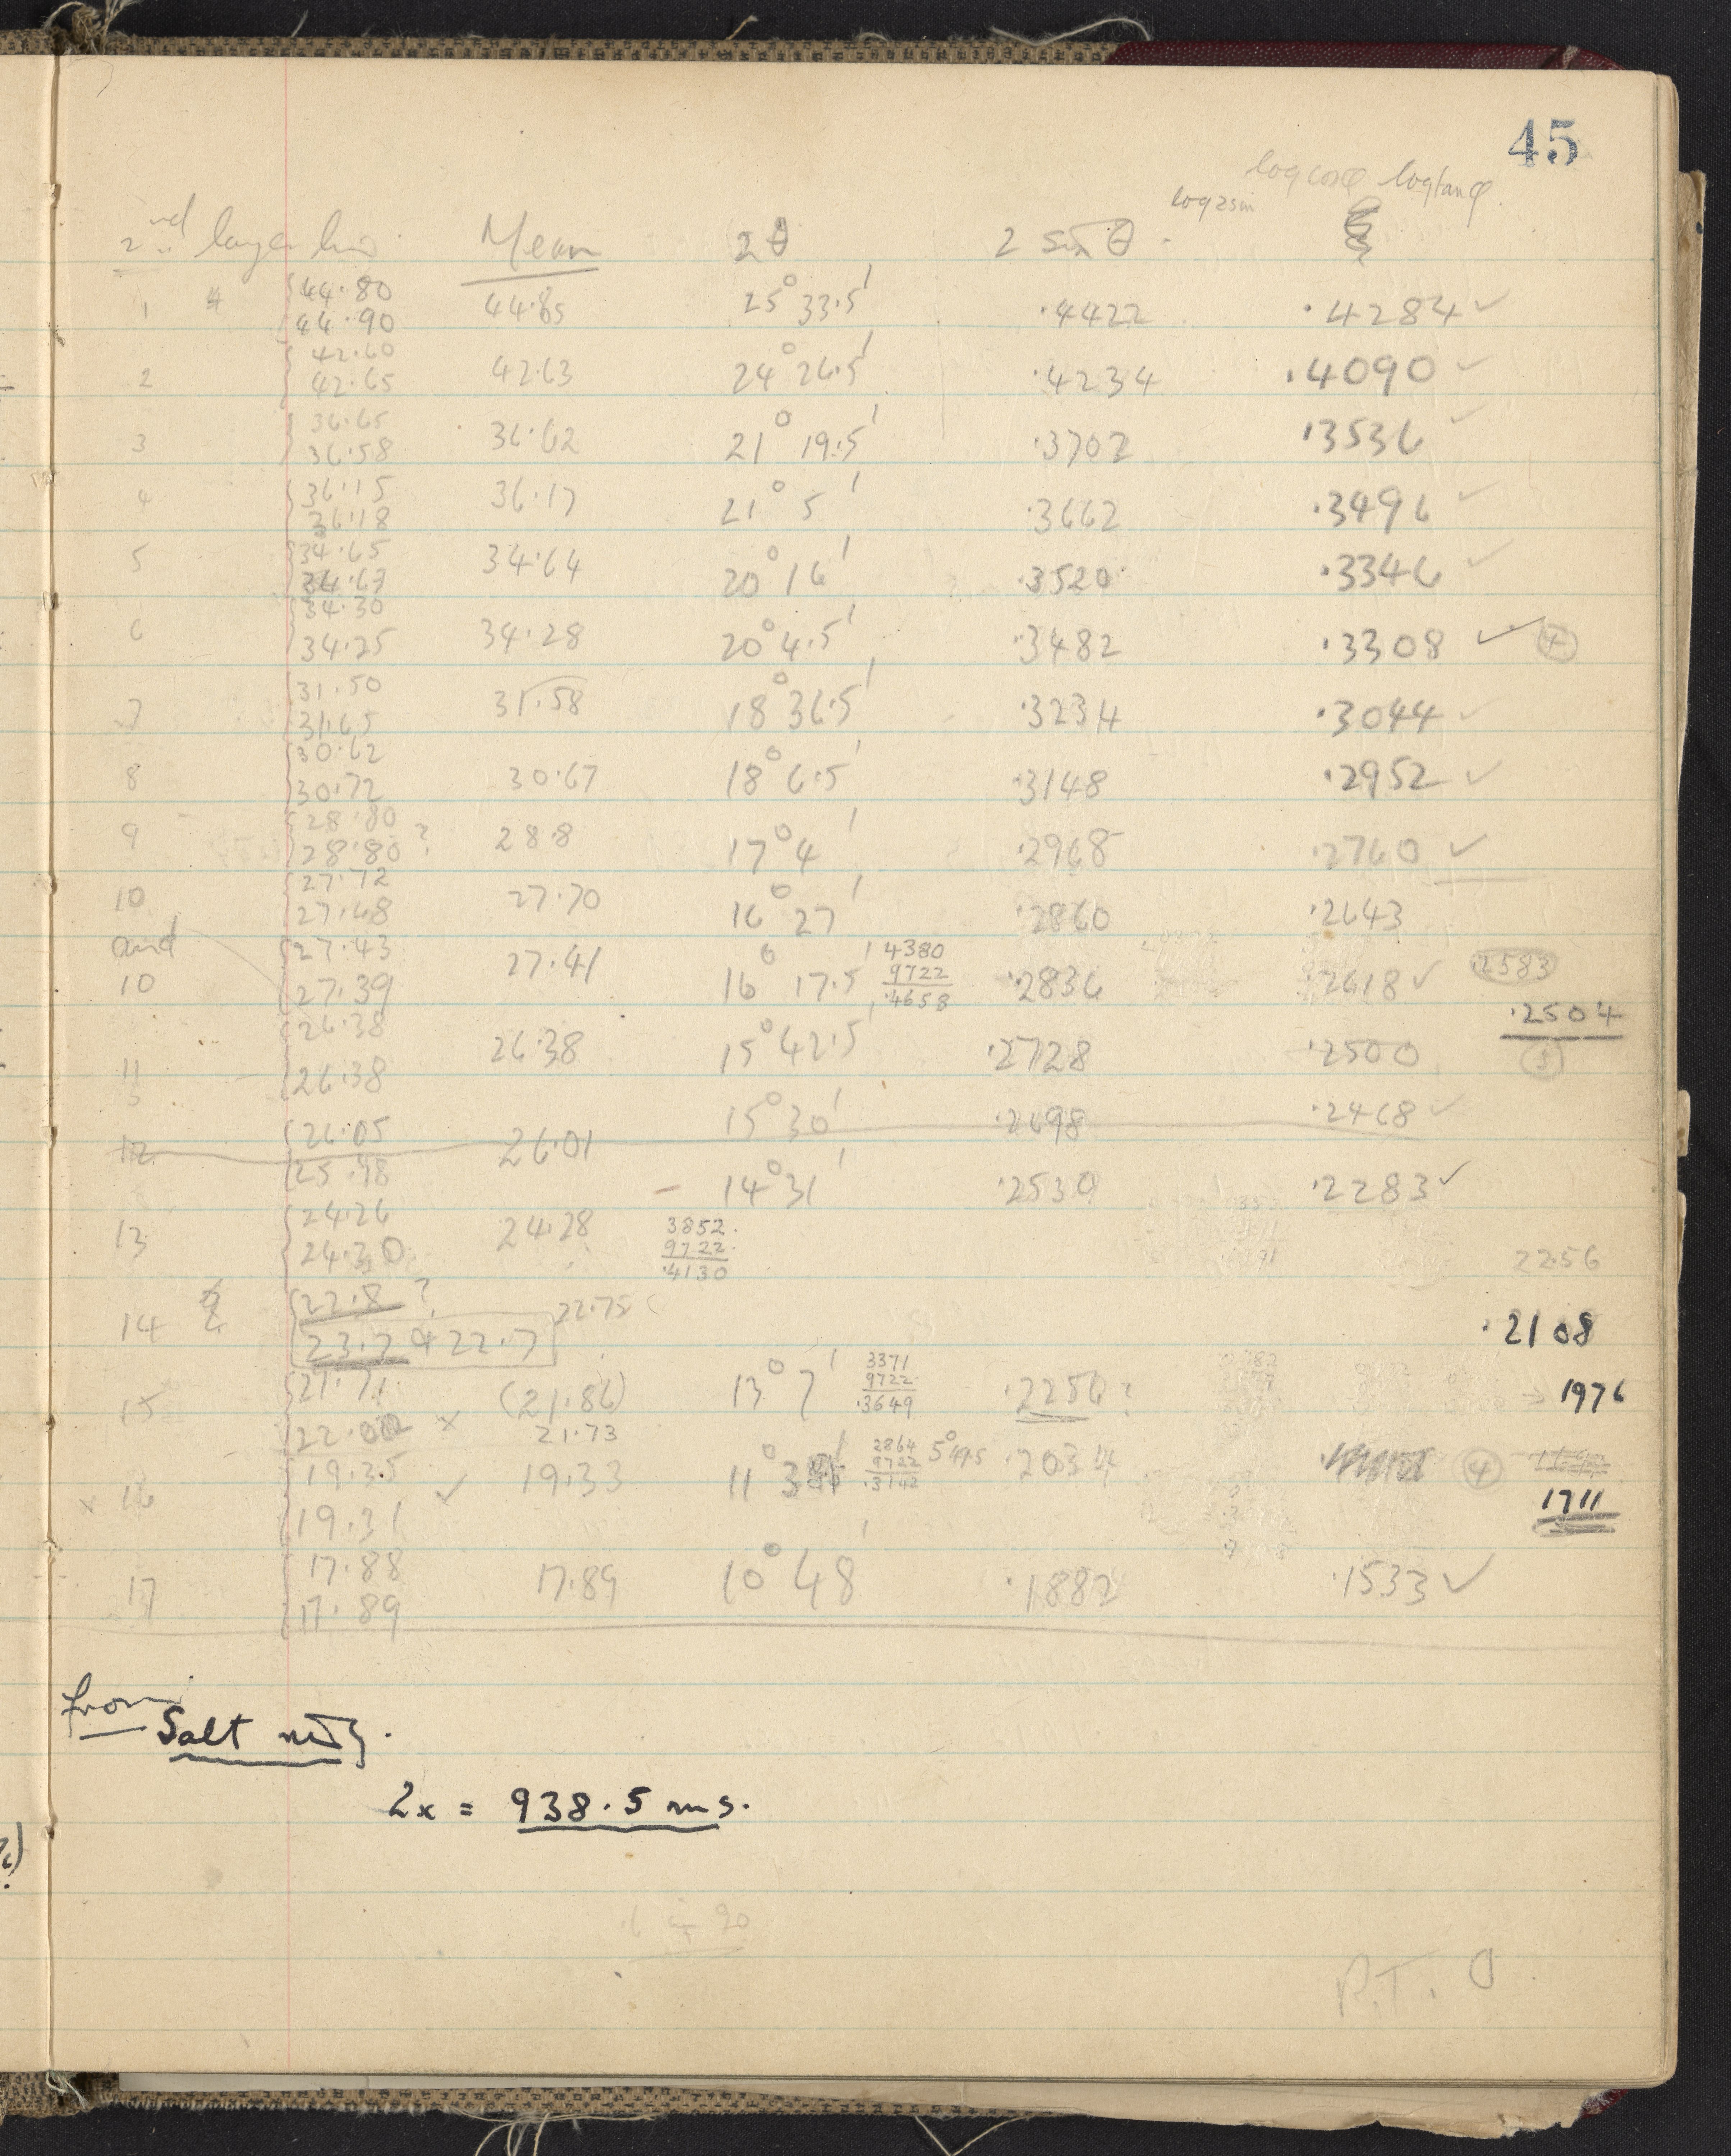 45
log cosφ log tanφ
log 2 sin
2nd layer line Mean 2θ 2 sin θ ξ
1 44.80 44.85 25° 33.5' .4422 .4284 ✓
44.90
2 42.60 42.63 24° 26.5' .4234 .4090 ✓
42.65
3 36.65 36.62 21° 19.5' .3702 .3536 ✓
36.58
4 36.15 36.17 21° 5' .3662 .3496 ✓
36.18
5 34.65 34.64 20° 16' .3520 .3346 ✓
34.63
6 34.30 34.28 20° 4.5' .3482 .3308 ✓
34.25
7 31.50 31.58 18° 36.5' .3234 .3044 ✓
31.65
8 30.62 30.67 18° 6.5' .3148 .2952 ✓
30.72
9 28.80 28.8 17° 4' .2968 .2760 ✓
28.80 ?
10 27.72 27.70 16° 27' .2860 .2643
27.68
and 27.43 27.41 16° 17.5' 4380 .2836 .2618 ✓ 2583
10 27.39 9722
.4658
.2504
11 26.38 26.38 15° 42.5' .2728 .2500 1
26.38
15° 30' .2698 .2468 ✓
12 26.05 26.01
25.98
14° 31' .2530 .2283 ✓
13 24.26 24.28 3852
24.30 9722
.4130
2256
14 22.8 ? 22.75
23.7 & 22.7
.2108
15 21.71 (21.86) 13° 7' 3371 .2256 ? 1976
22.00 x 21.73 9722
.3649
x 16 19.35 ✓ 19.33 11° 2864 5° 49.5 .2034 4
19.31 9722
.3142
1711
17 17.88 17.89 10° 48' .1882 .1533 ✓
17.89
from Salt
2x = 938.5 ms.
P.T.O